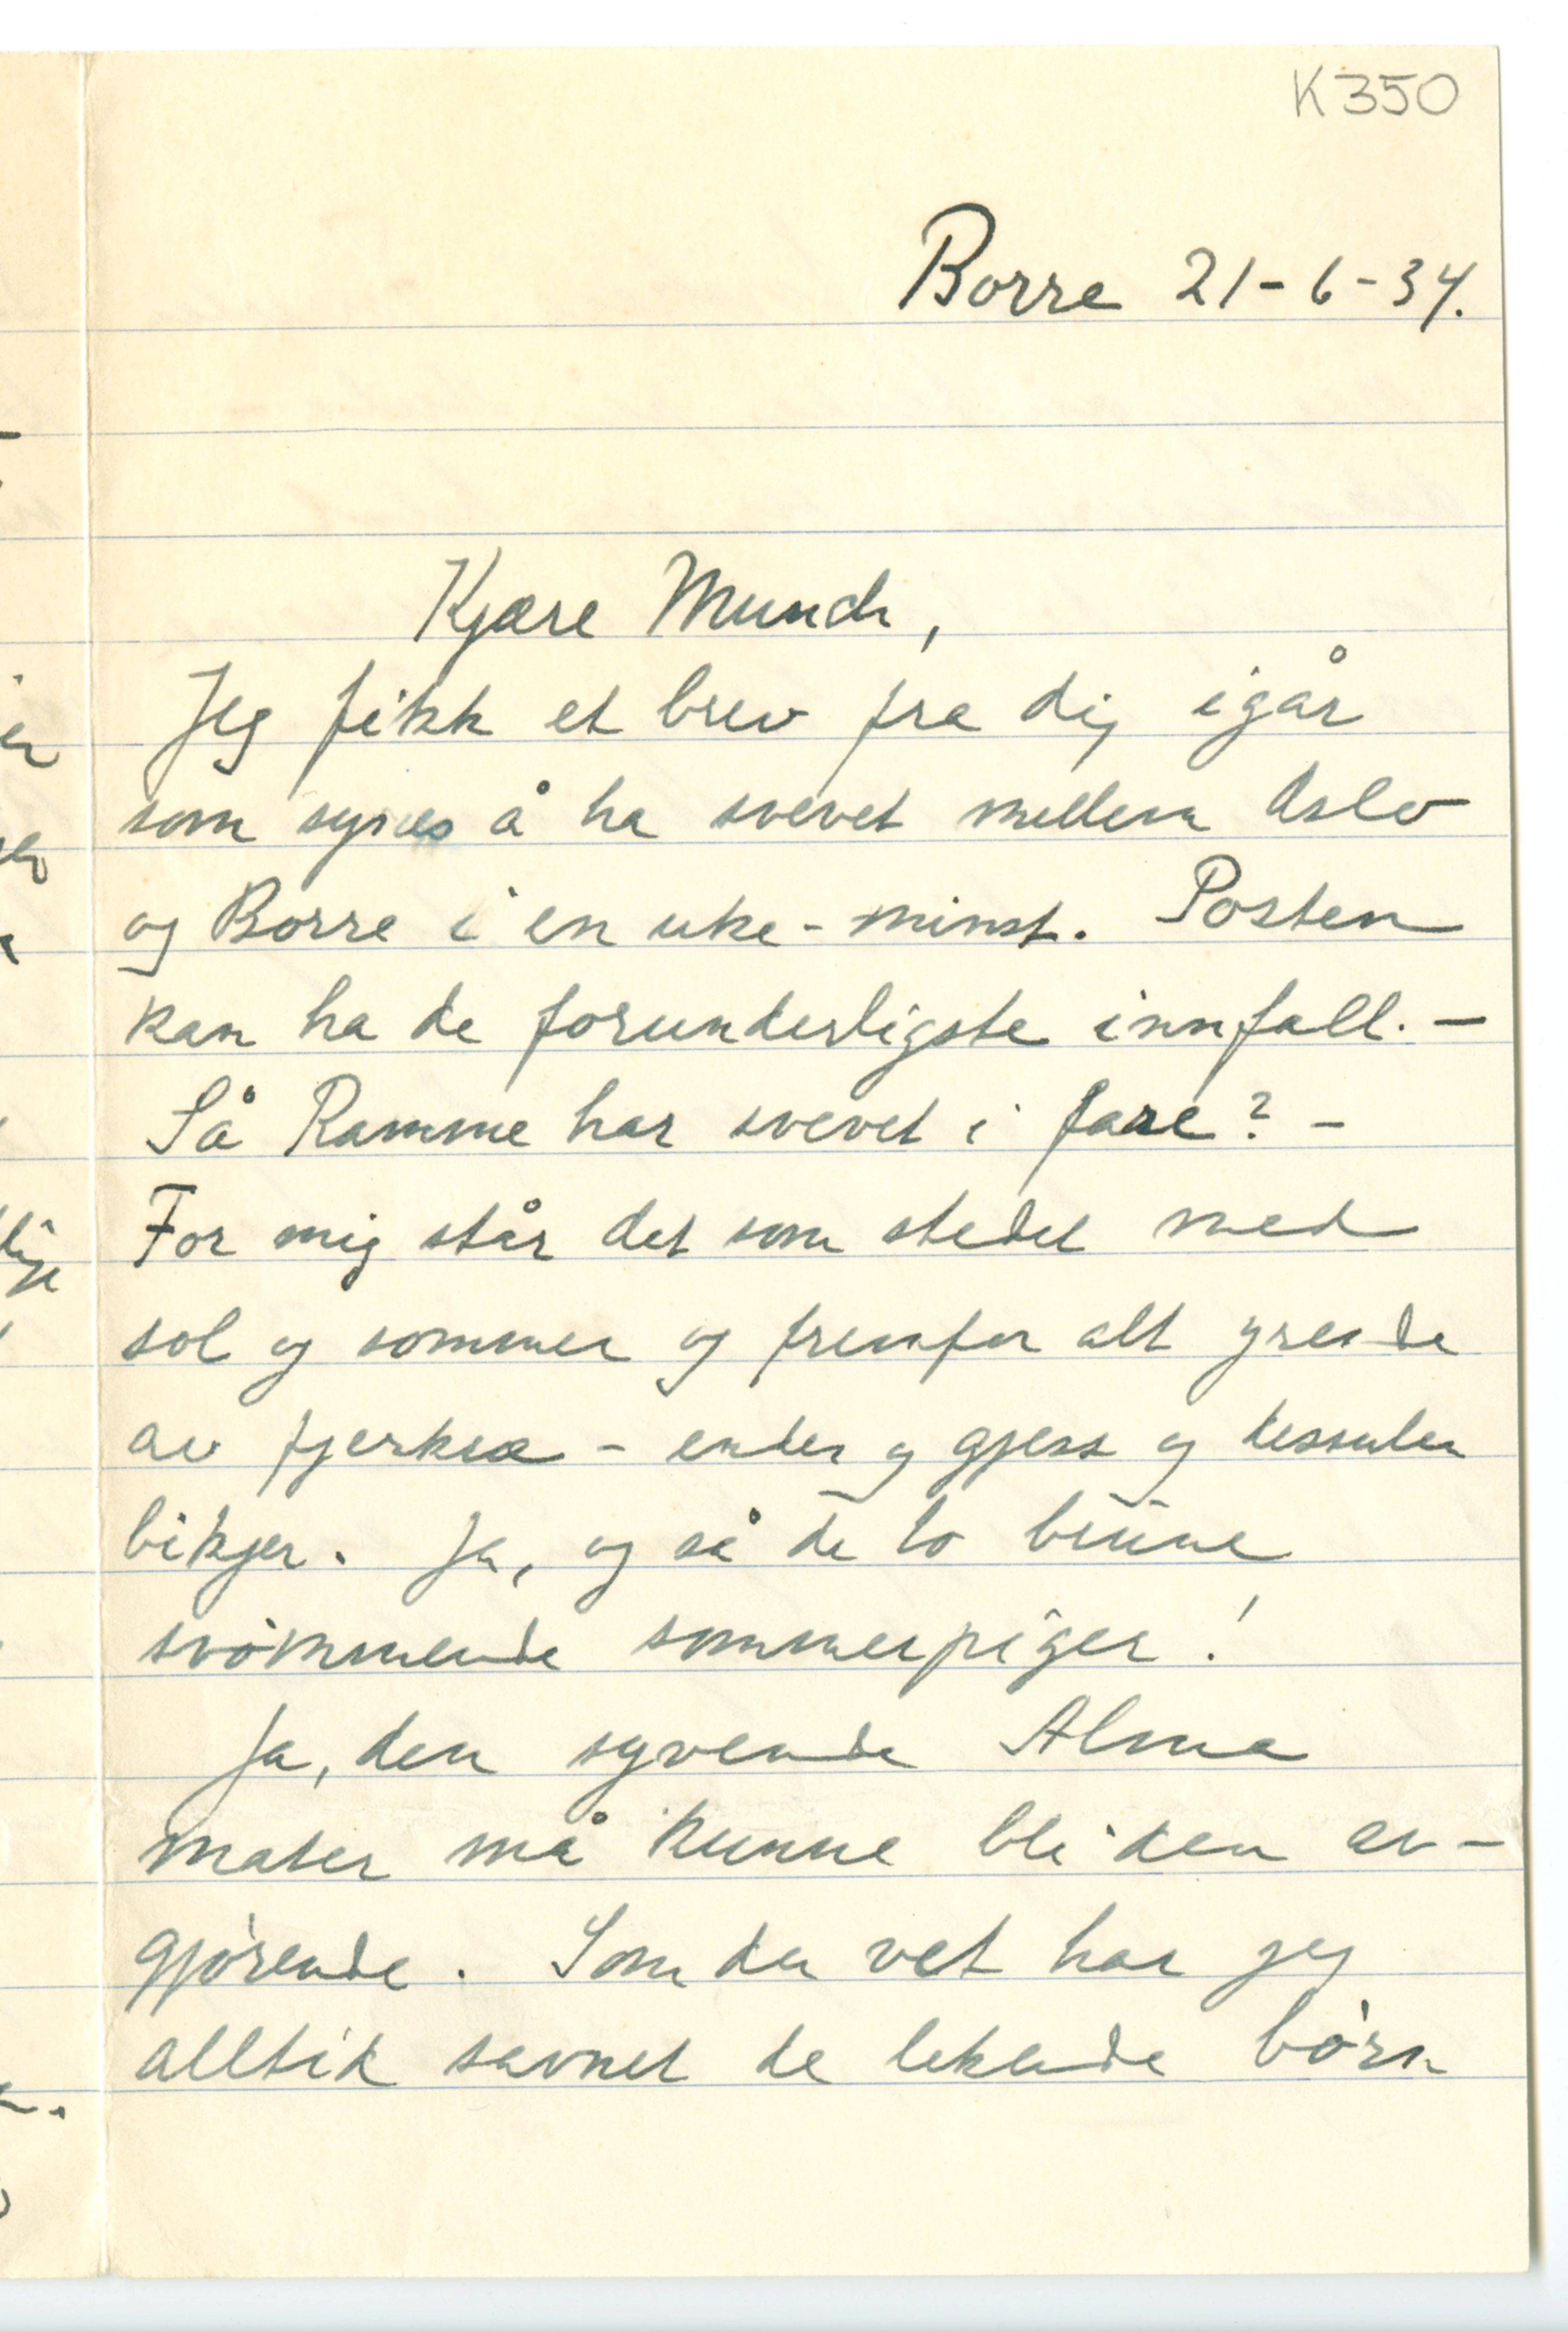 K350
Borre 21-6-34.
Kjære Munch,
Jeg fikk et brev fra dig igår
som synes å ha svevet mellem Oslo
og Borre i en uke - minst. Posten
kan ha de forunderligste innfall. -
Så Ramme har svevet i fare? -
For mig står det som stedet med
sol og sommer og fremfor alt yrende
av fjerkræ - ender og gjess og dessuten
bikjer. Ja, og så de to brune
svømmende sommerpiger!
Ja, den syvende Alma
mater må kunne bli den av-
gjørende. Som du vet har jeg
alltid savnet de lekende børn